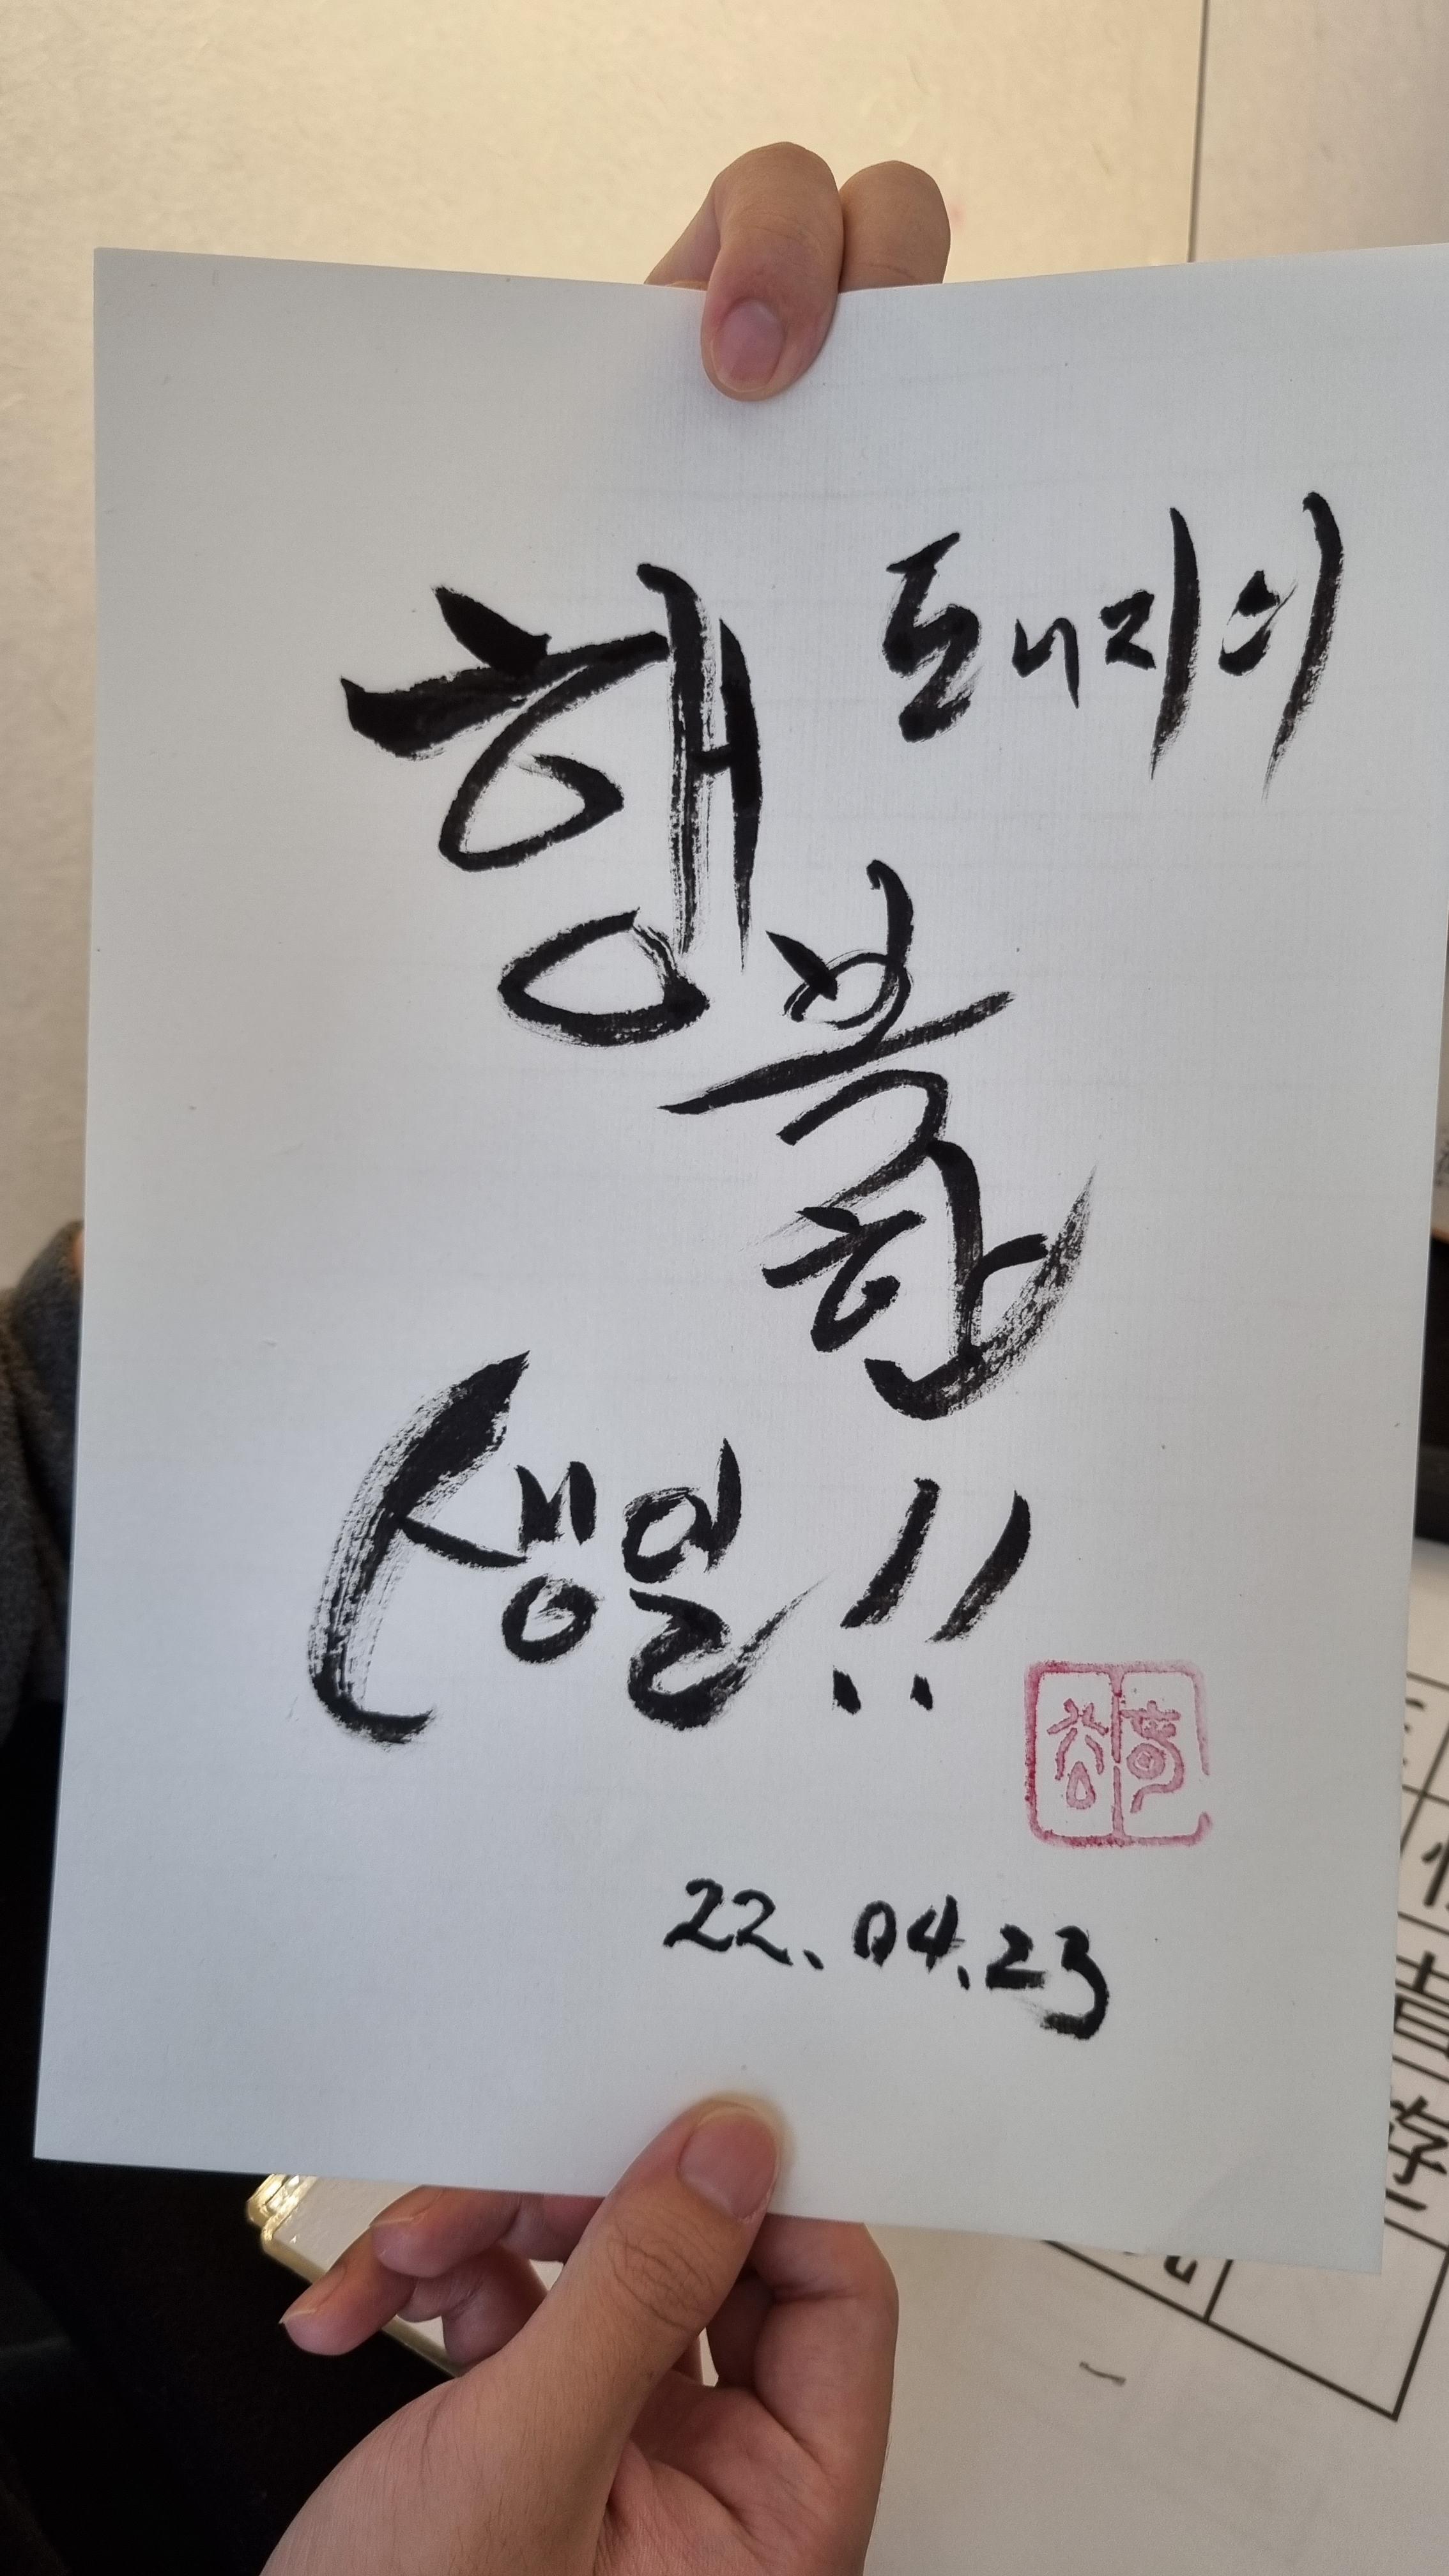 돼지의
행복한
생일!!
22.04.23